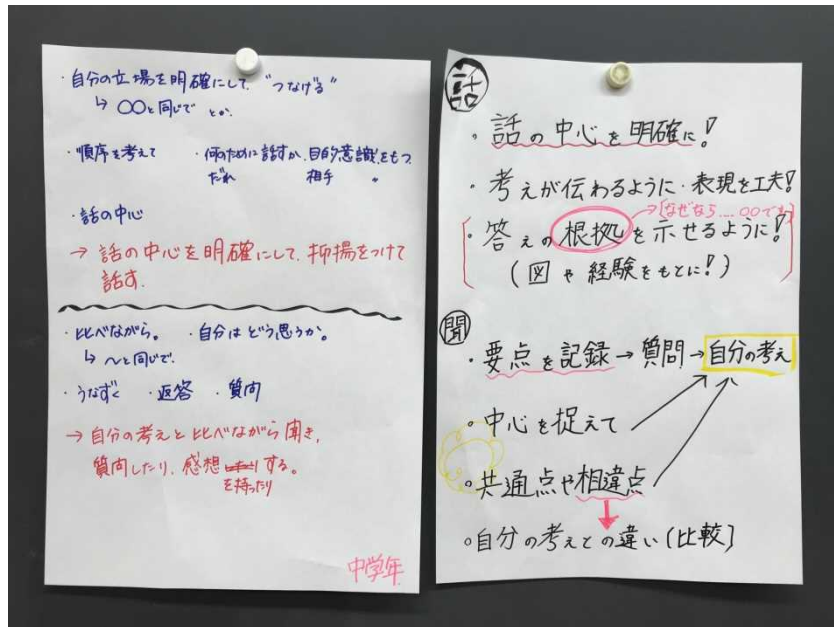 ・自分の立場を明確にして、“つなげる”
↳ 〇〇と同じで とか.
・順序を考えて ・何のために話すか、目的意識をもつ.
だれ 相手 〃
・話の中心
→ 話の中心を明確にして、抑揚をつけて
話す.
・比べながら。 ・自分はどう思うか。
↳ 〜と同じで.
・うなずく ・返答 ・質問
→ 自分の考えと比べながら聞き,
質問したり、感想 したり する。
を持ったり
中学年
話
・話の中心を明確に!
・考えが伝わるように・表現を工夫!
→〔なぜなら....〇〇でも〕
・答えの根拠を示せるように!
(図や経験をもとに!)
聞
・要点を記録→質問→自分の考え
・中心を捉えて
・共通点や相違点
・自分の考えとの違い〔比較〕